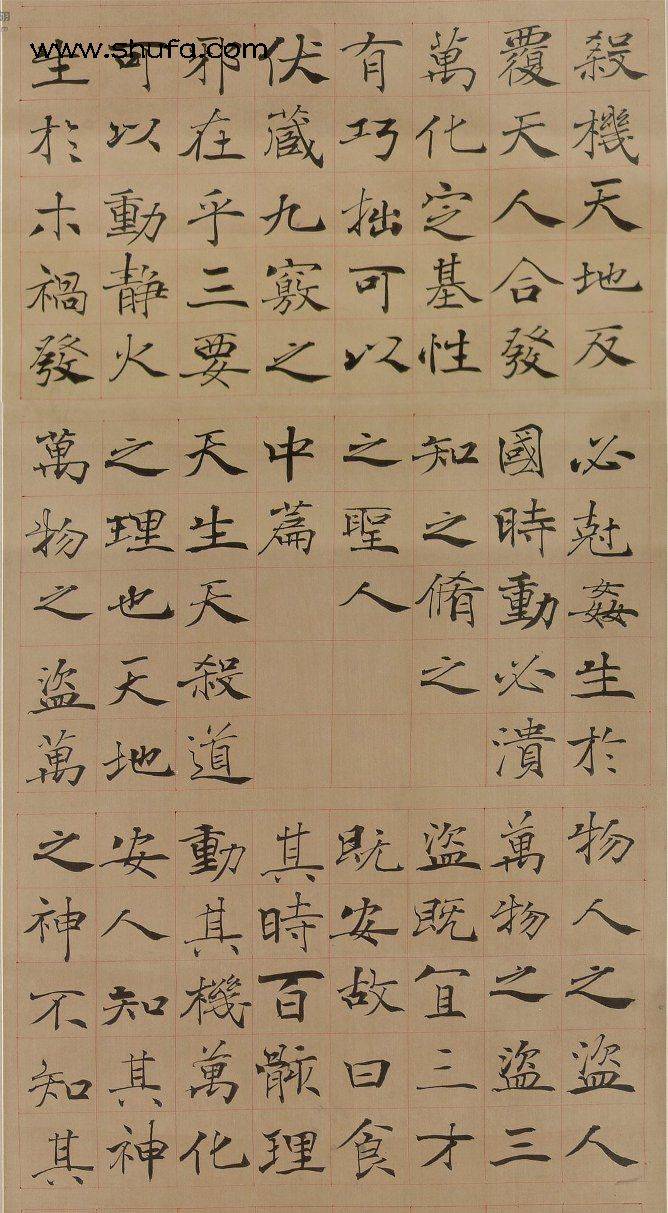 www.shufa.com
殺機天地反
覆天人合發
萬化定基性
有巧拙可以
伏蔵九竅之
邪在乎三要
可以動静火
生於木禍發
必尅姦生於
國時動必潰
知之脩之
之聖人
中篇
天生天殺道
之理也天地
萬物之盜萬
物人之盜人
萬物之盜三
盜既宜三才
既安故曰食
其時百骸理
動其機萬化
安人知其神
之神不知其